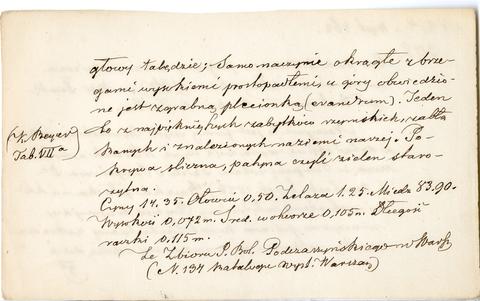 głowy łabędzie; Samo naczynie okrągłe z brze-
gami wysokiemi prostopadłemi, u góry obwiedzio-
ne jest zgrabną plecionką (evandrum). Jeden
to z najpiękniejszych zabytków rzymskich,
kanych i znalezionych na ziemi naszej. Po-
krywa śliczna, patyna czyli zieleń staro-
żytna.
(K. Beyer
Tab. VII a)
Cyny 14.35. Ołowiu 0,50. Żelaza 1.25. Miedz 83.90.
Wysokość 0,072 m. Śred. w otworze 0,105 m. Długość
rączki 0.115 m.
Ze Zbioru P. Bol. Podczaszyńskiego w Warsz
(N. 134 Katalogu Wyst. Warszaw)